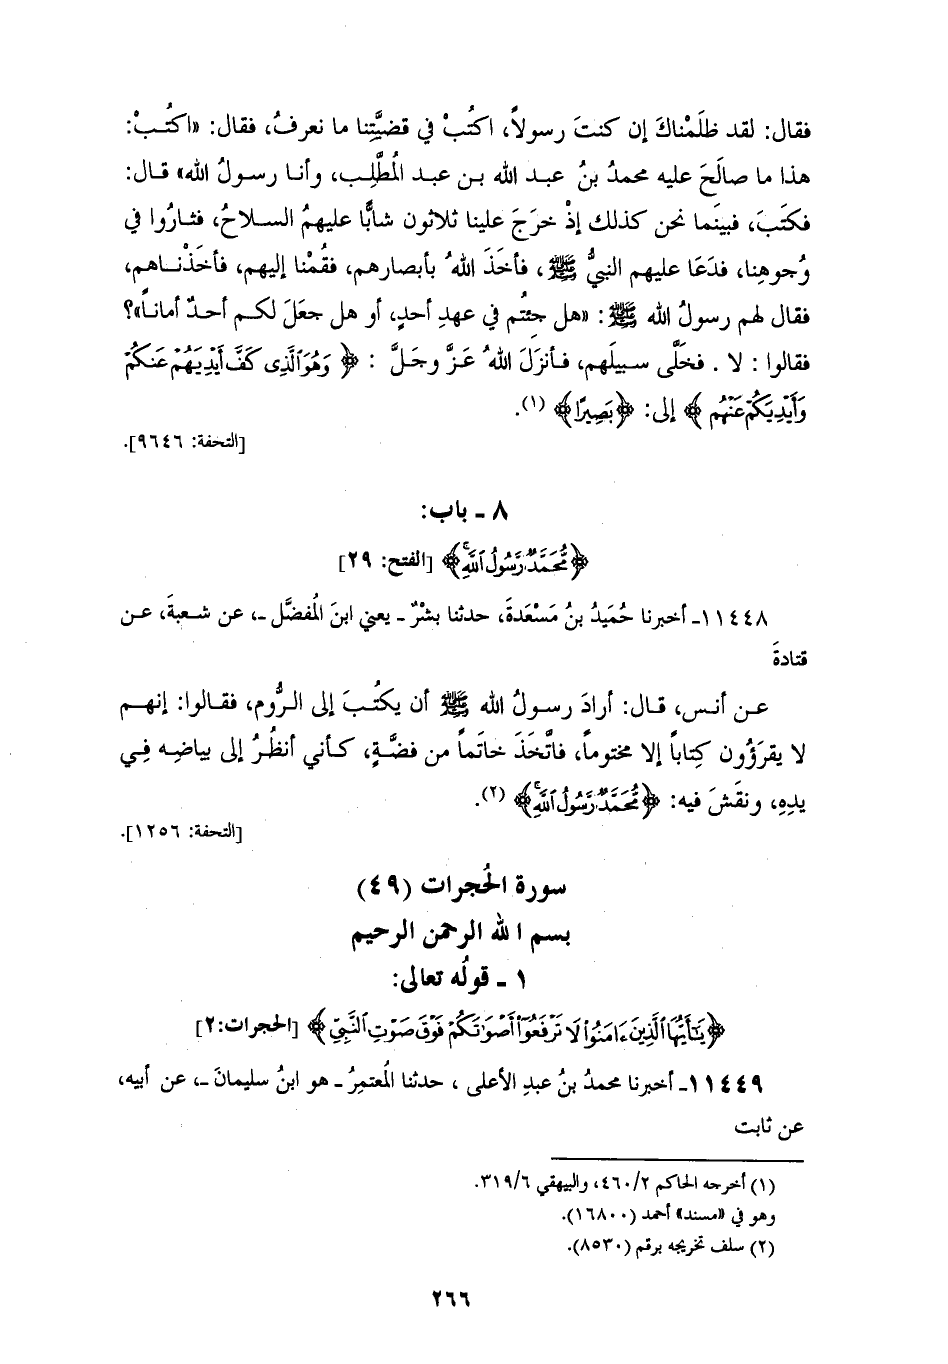 فقال: لقد ظلَمْناكَ إن كنتَ رسولاً، اكتُبْ في قضيَّتِنا ما نعرفُ، فقال: «اكتُبْ:
هذا ما صالَحَ عليه محمدُ بنُ عبد الله بن عبد المُطَّلِب، وأنا رسولُ الله» قال:
فكتَبَ، فبينَما نحن كذلك إذْ خرجَ علينا ثلاثون شابًّا عليهمُ السلاحُ، فثارُوا في
وُجوهِنا، فدَعَا عليهم النبيُّ ﷺ، فأخَذَ اللهُ بأبصارهم، فقُمْنا إليهم، فأخَذْناهم،
فقال لهم رسولُ الله ﷺ: «هل جئتُم في عهدِ أحدٍ، أو هل جعَلَ لكم أحدٌ أماناً»؟
فقالوا: لا. فخلَّى سبيلَهم، فأنزلَ اللهُ عزَّ وجلَّ: ﴿وَهُوَ ٱلَّذِى كَفَّ أَيْدِيَهُمْ عَنكُمْ
وَأَيْدِيَكُمْ عَنْهُم﴾ إلى: ﴿بَصِيرًا﴾ (١).
[التحفة: ٩٦٤٦].
٨ ـ باب:
﴿مُّحَمَّدٌ رَّسُولُ ٱللَّهِ ۚ﴾ [الفتح: ٢٩]
١١٤٤٨ـ أخبرنا حُمَيدُ بنُ مَسْعَدةَ، حدثنا بشْرٌ ـ يعني ابنَ المُفضَّل ـ، عن شعبةَ، عن
قتادةَ
عن أنس، قال: أرادَ رسولُ الله ﷺ أن يكتُبَ إلى الرُّوم، فقالوا: إنهم
لا يقرَؤُون كِتاباً إلا مختوماً، فاتَّخَذَ خاتَماً من فضَّةٍ، كأني أنظُرُ إلى بياضِه فِي
يدِهِ، ونقَشَ فيه: ﴿مُّحَمَّدٌ رَّسُولُ ٱللَّهِ ۚ﴾ (٢).
[التحفة: ١٢٥٦].
سورة الحُجرات (٤٩)
بسم الله الرحمن الرحيم
١ ـ قولُه تعالى:
﴿يَٰٓأَيُّهَا ٱلَّذِينَ ءَامَنُوا۟ لَا تَرْفَعُوٓا۟ أَصْوَٰتَكُمْ فَوْقَ صَوْتِ ٱلنَّبِىِّ﴾ [الحجرات:٢]
١١٤٤٩ـ أخبرنا محمدُ بنُ عبدِ الأعلى، حدثنا المُعتمِرُ ـ هو ابنُ سليمانَ ـ، عن أبيه،
عن ثابت
(١) أخرجه الحاكم ٤٦٠/٢، والبيهقي ٣١٩/٦.
وهو في «مسند» أحمد (١٦٨٠٠).
(٢) سلف تخريجه برقم (٨٥٣٠).
٢٦٦